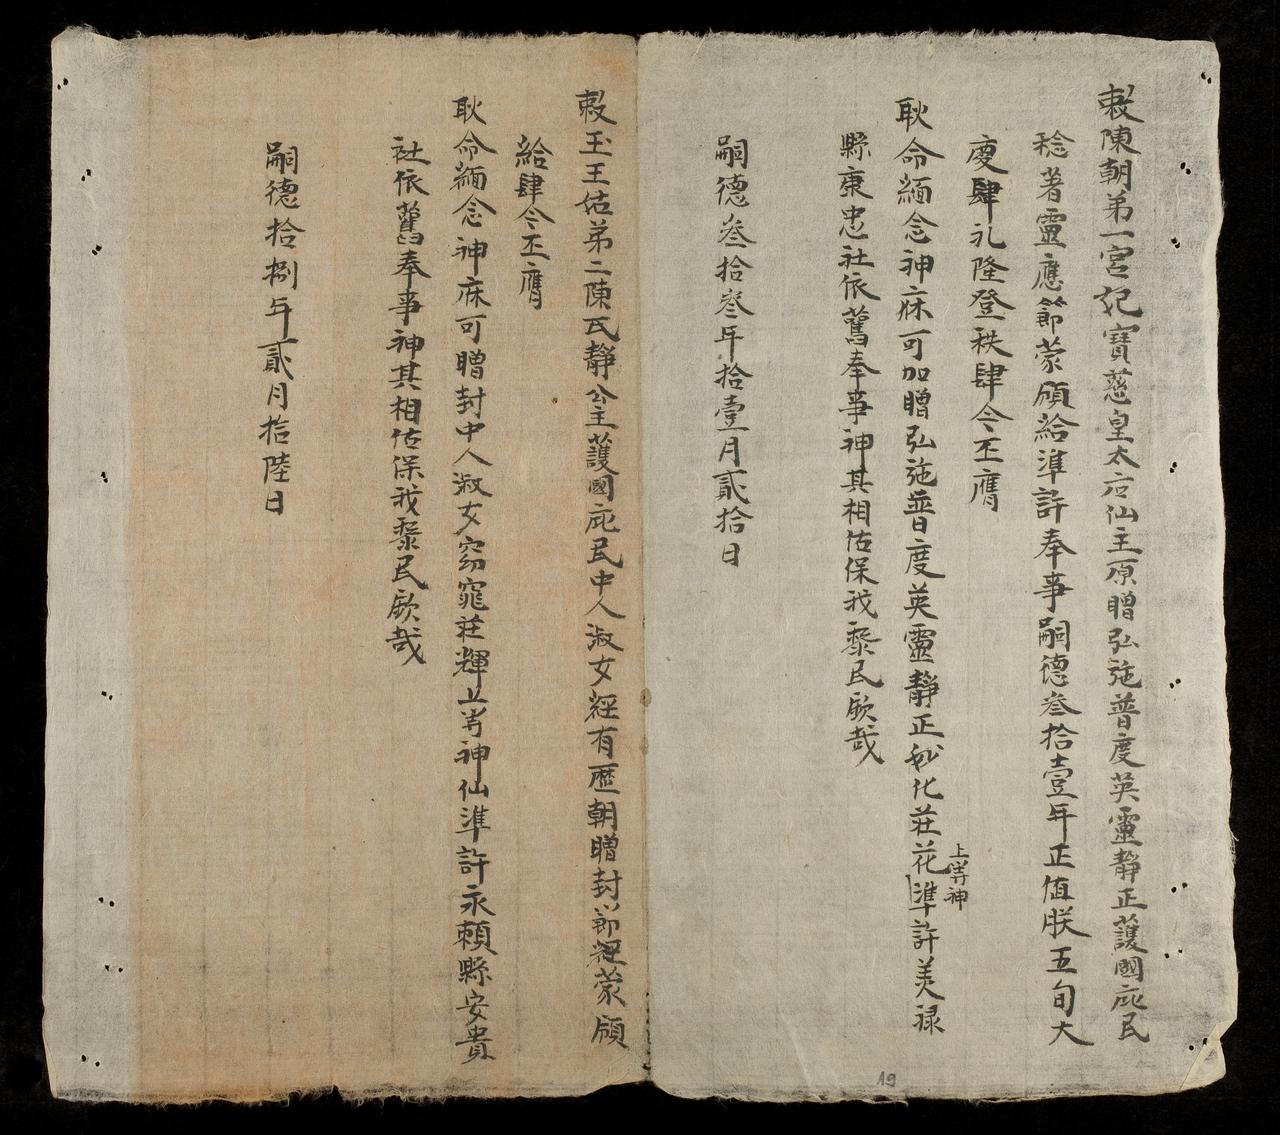 敕陳朝弟一宮妃寶慈皇太后仙主原贈弘施普度英靈静正護國庇民
稔著靈應節蒙頒給準許奉事嗣德叁拾壹年正值朕五旬大
慶肆礼隆登秩肆今丕膺
耿命緬念神庥可加贈弘施普度英靈静正妙化莊花準許美禄
上等神
縣康忠社依舊奉事神其相佑保我黎民欽哉
嗣德叁拾叁年拾壹月貳拾日
19
敕玉王姑弟二陳氏静公主護國庇民中人淑女經有歷朝贈封節經蒙頒
給肆今丕膺
耿命緬念神庥可贈封中人淑女窈窕莊輝上等神仙準許永賴縣安貴
社依舊奉事神其相佑保我黎民欽哉
嗣德拾捌年貳月拾陸日